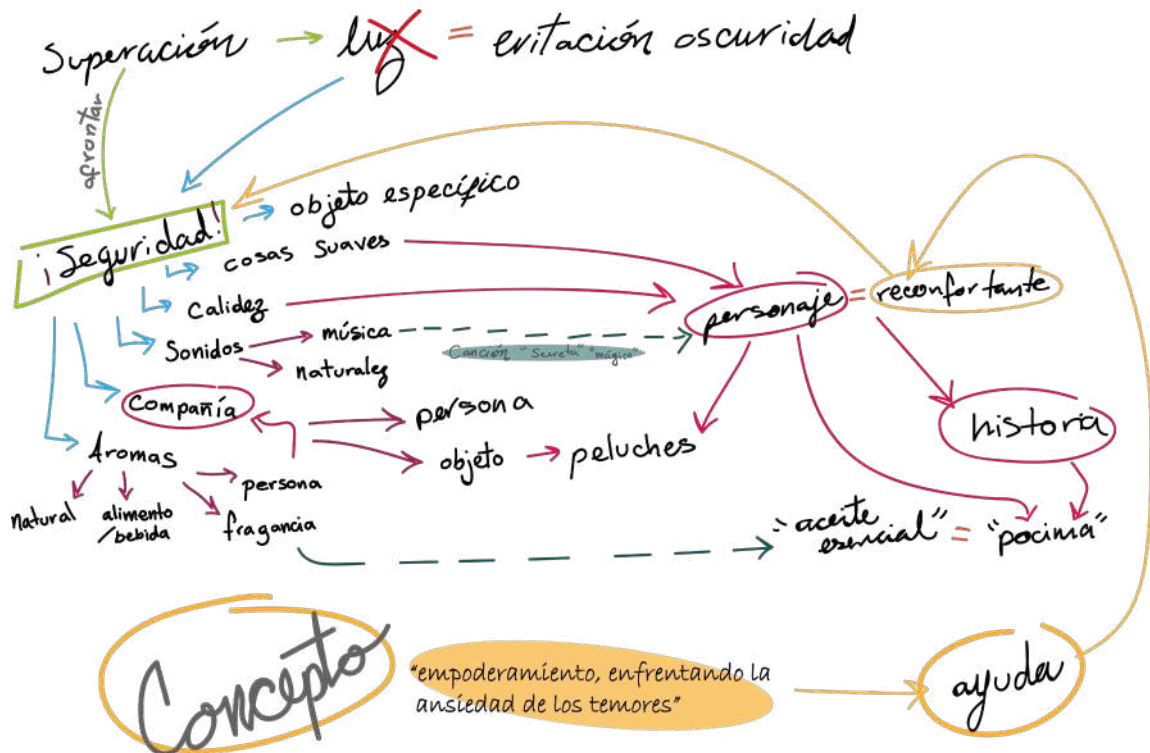 Superación → luz = evitación oscuridad
afrontar
¡Seguridad!
objeto específico
cosas suaves
Calidez
Sonidos
música
naturalez
Canción "Secreta" "mágica"
personaje = reconfortante
Compañía
persona
objeto → peluches
historia
Aromas
persona
natural
alimento
/bebida
fragancia
"aceite
esencial" = "pocima"
Concepto
"empoderamiento, enfrentando la
ansiedad de los temores"
ayuda